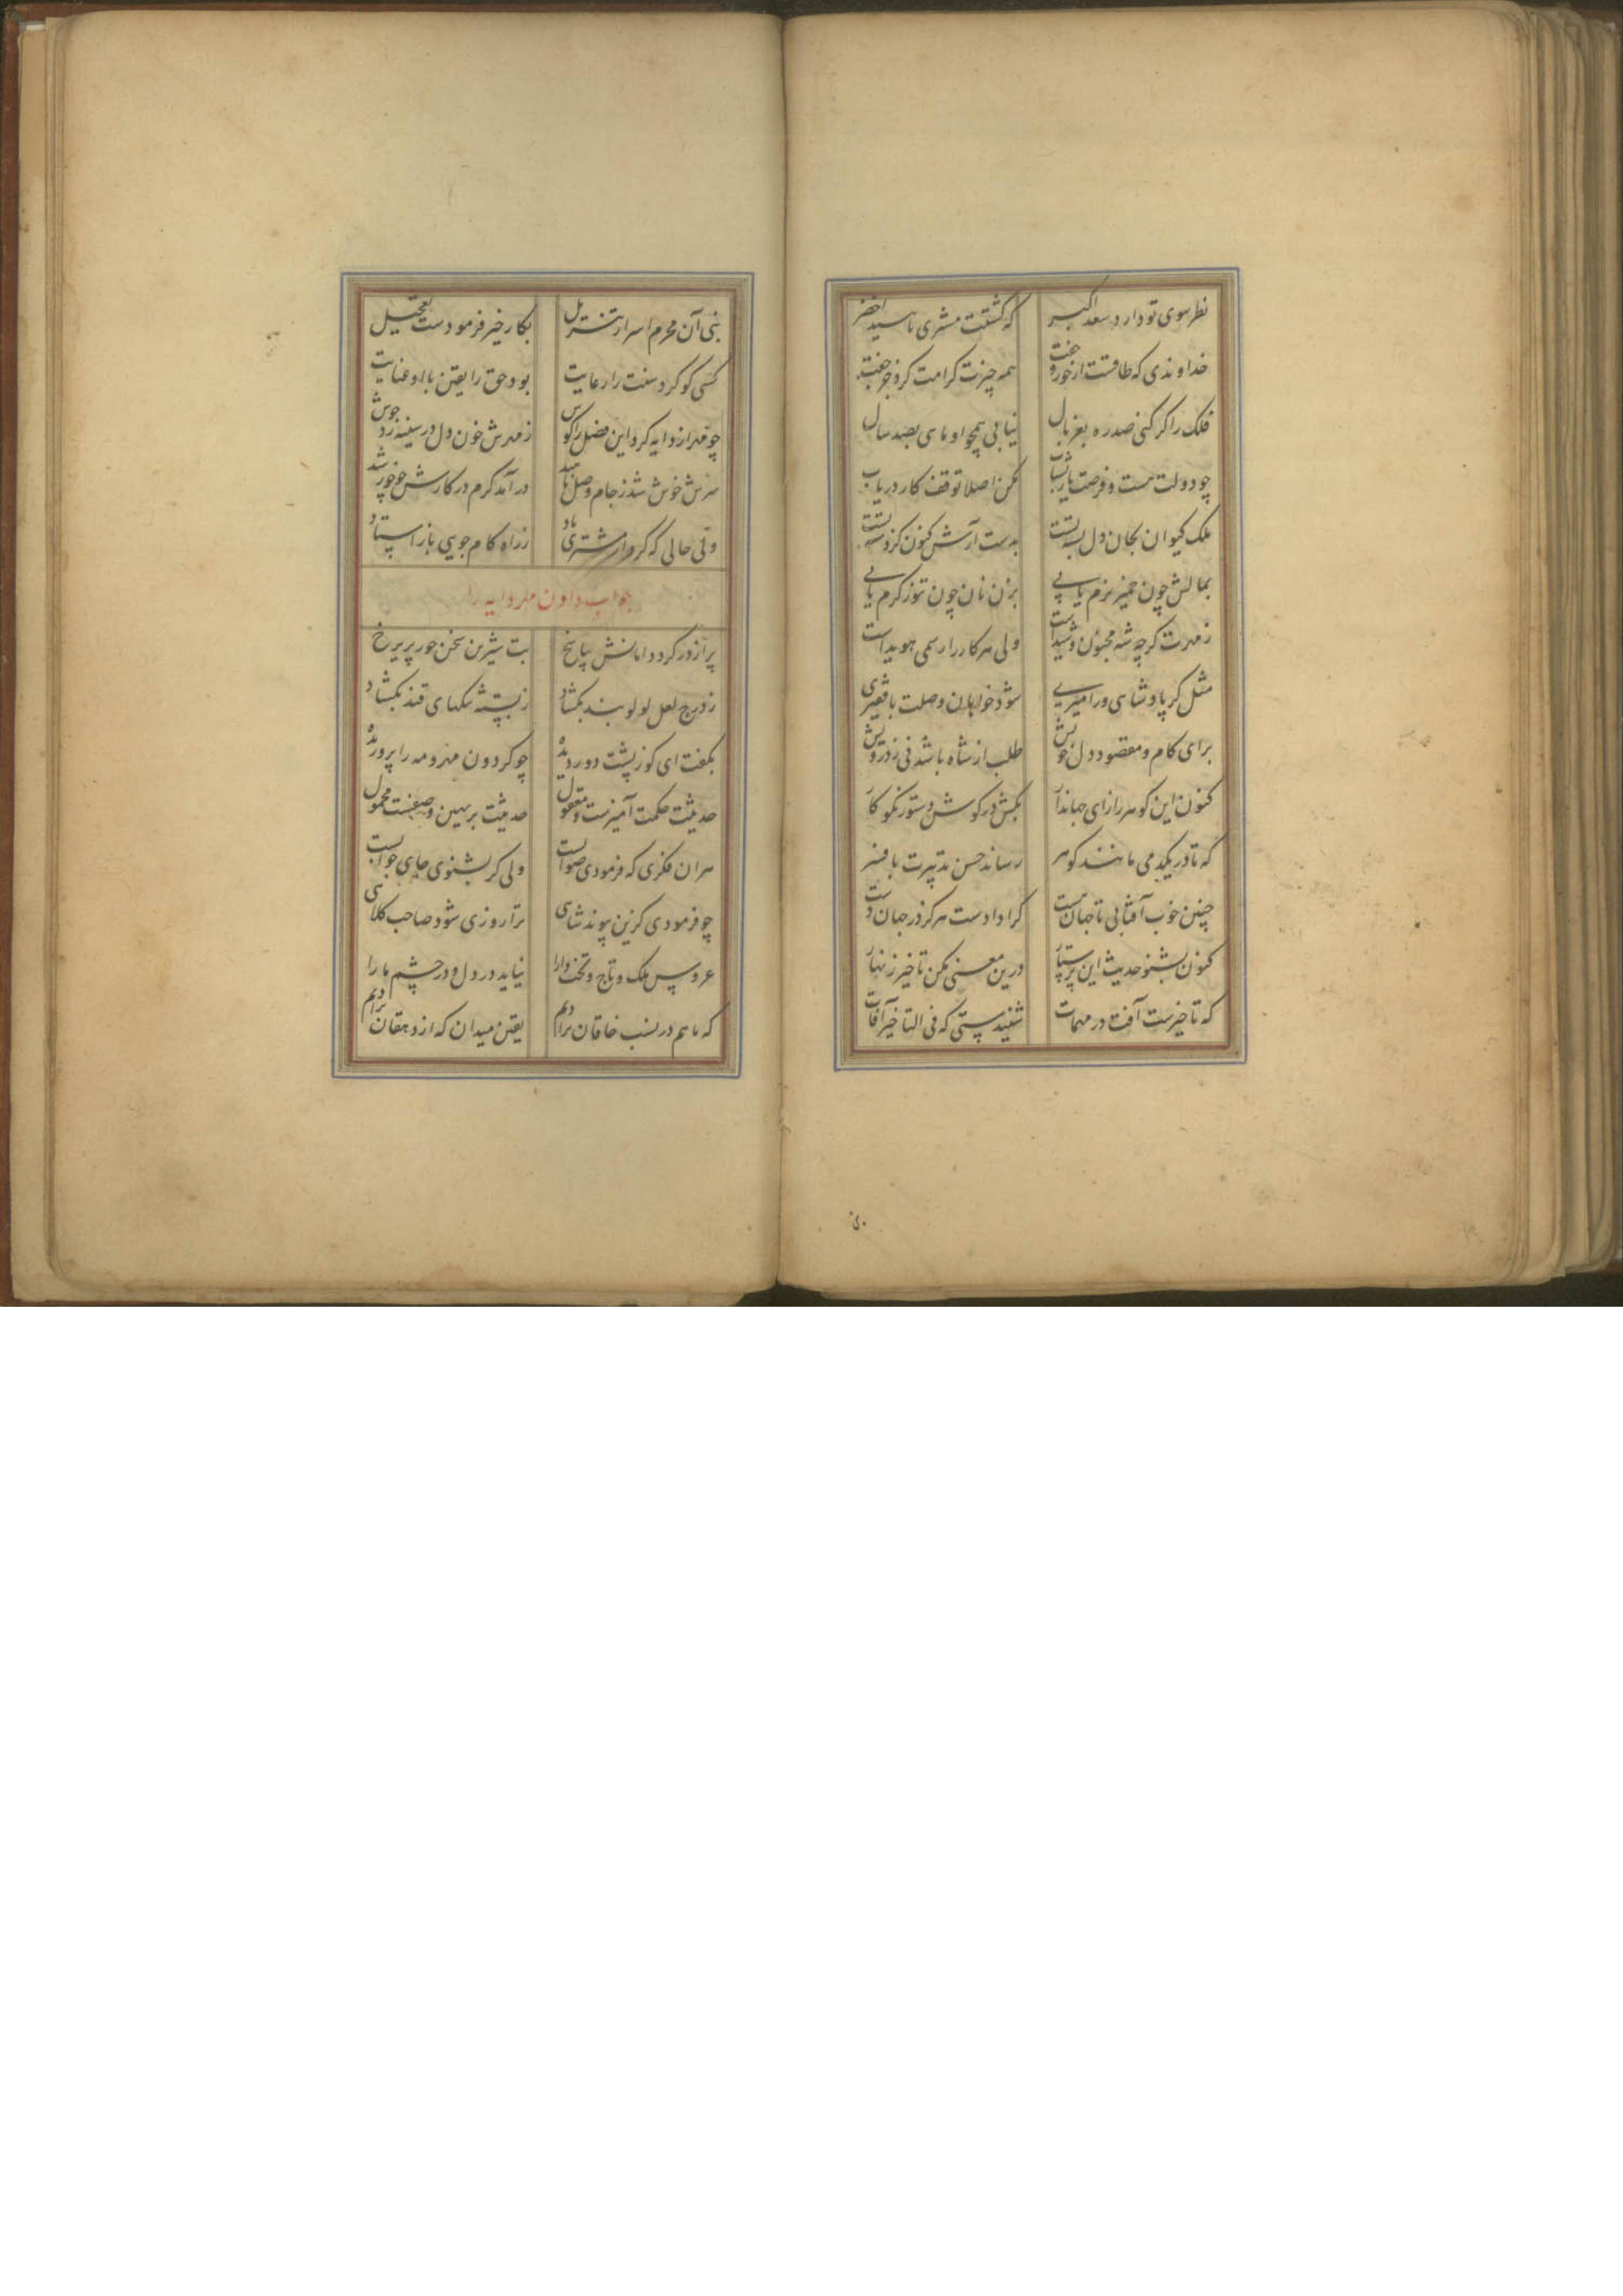 نظر سوی تو دارد سعد اکبر که گشتت مشتری ناهید اخضر
خداوندی که طاقست از خور و جفت همه چیزت کرامت کرد جز جفت
فلک را گر کنی صد ره بغربال نیابی همچو او ماهی بصد سال
چو دولت هست و فرصت یار بشتاب مکن اصلا توقف کار دریاب
ملک کیوان بجان دل بسته تست بدست آرش کنون کز دست
بمالش چون خمیر نرم یابی بزن نان چون تنور گرم یابی
ز مهرت گرچه شه مجنون و شیداست ولی هر کار را رسمی هویداست
مثل گر پادشاهی ور امیری شود خواهان وصلت با فقیری
برای کام و مقصود دل خویش طلب از شاه باشد نی ز درویش
کنون این گوهر راز ای جهاندار بکش در گوش دستور نکوکار
که تا در یکدمی مانند گوهر رساند حسن تدبیرت بافسر
چنین خوب آفتابی تا جهان هست کرا دادست هرگز در جهان دست
کنون بشنو حدیث این پرستار درین معنی مکن تاخیر زنهار
که تاخیرست آفت در مهمات شنیدستی که فی التاخیر آفات
نبی آن محرم اسرار تنزیل بکار خیر فرمودست تعجیل
کسی کو کرد سنت را رعایت بود حق را یقین با او عنایت
چو مهر از دایه کرد این فضل را گوش ز مهرش خون دل در سینه زد جوش
سرش خوش شد ز جام وصل ناهید درآمد گرم در کارش چو خورشید
ولی حالی که کرد از مشتری یاد ز راه کام جویی باز استاد
جواب دادن مهر دایه را
پر از در کرد دامانش پاسخ بت شیرین سخن حور پریرخ
ز درج لعل لولو بند بگشاد ز پسته تنگهای قند بگشاد
بگفت ای کوز پشت دور دیده چو گردون مهر و مه را پروریده
حدیثت حکمت آمیزست و معقول حدیثت بر بهین وصفست محمول
هر ان فکری که فرمودی صوابست ولی گر بشنوی جای جوابست
چو فرمودی کزین پیوند شاهی ترا روزی شود صاحب کلاهی
عروس ملک و تاج و تخت دارا نیاید در دل و در چشم ما را
که ما هم در نسب خاقان نژادیم یقین میدان که از دهقان نژادیم